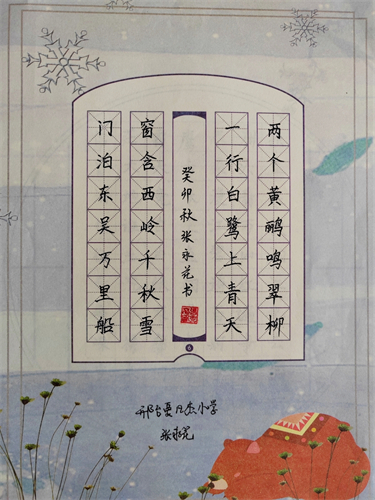 两个黄鹂鸣翠柳
一行白鹭上青天
癸卯秋张永花书
窗含西岭千秋雪
门泊东吴万里船
小学